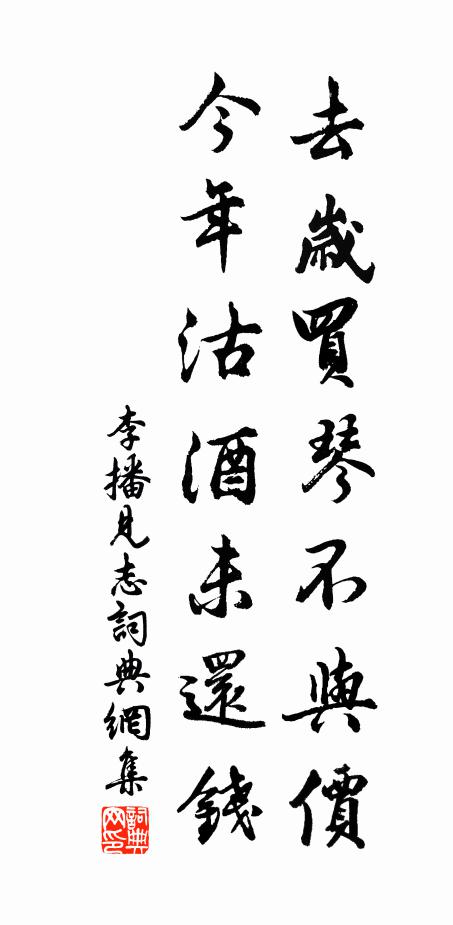 去歲買琴不與價
今年沽酒未還錢
李播見志詞典網集
詞典
网印